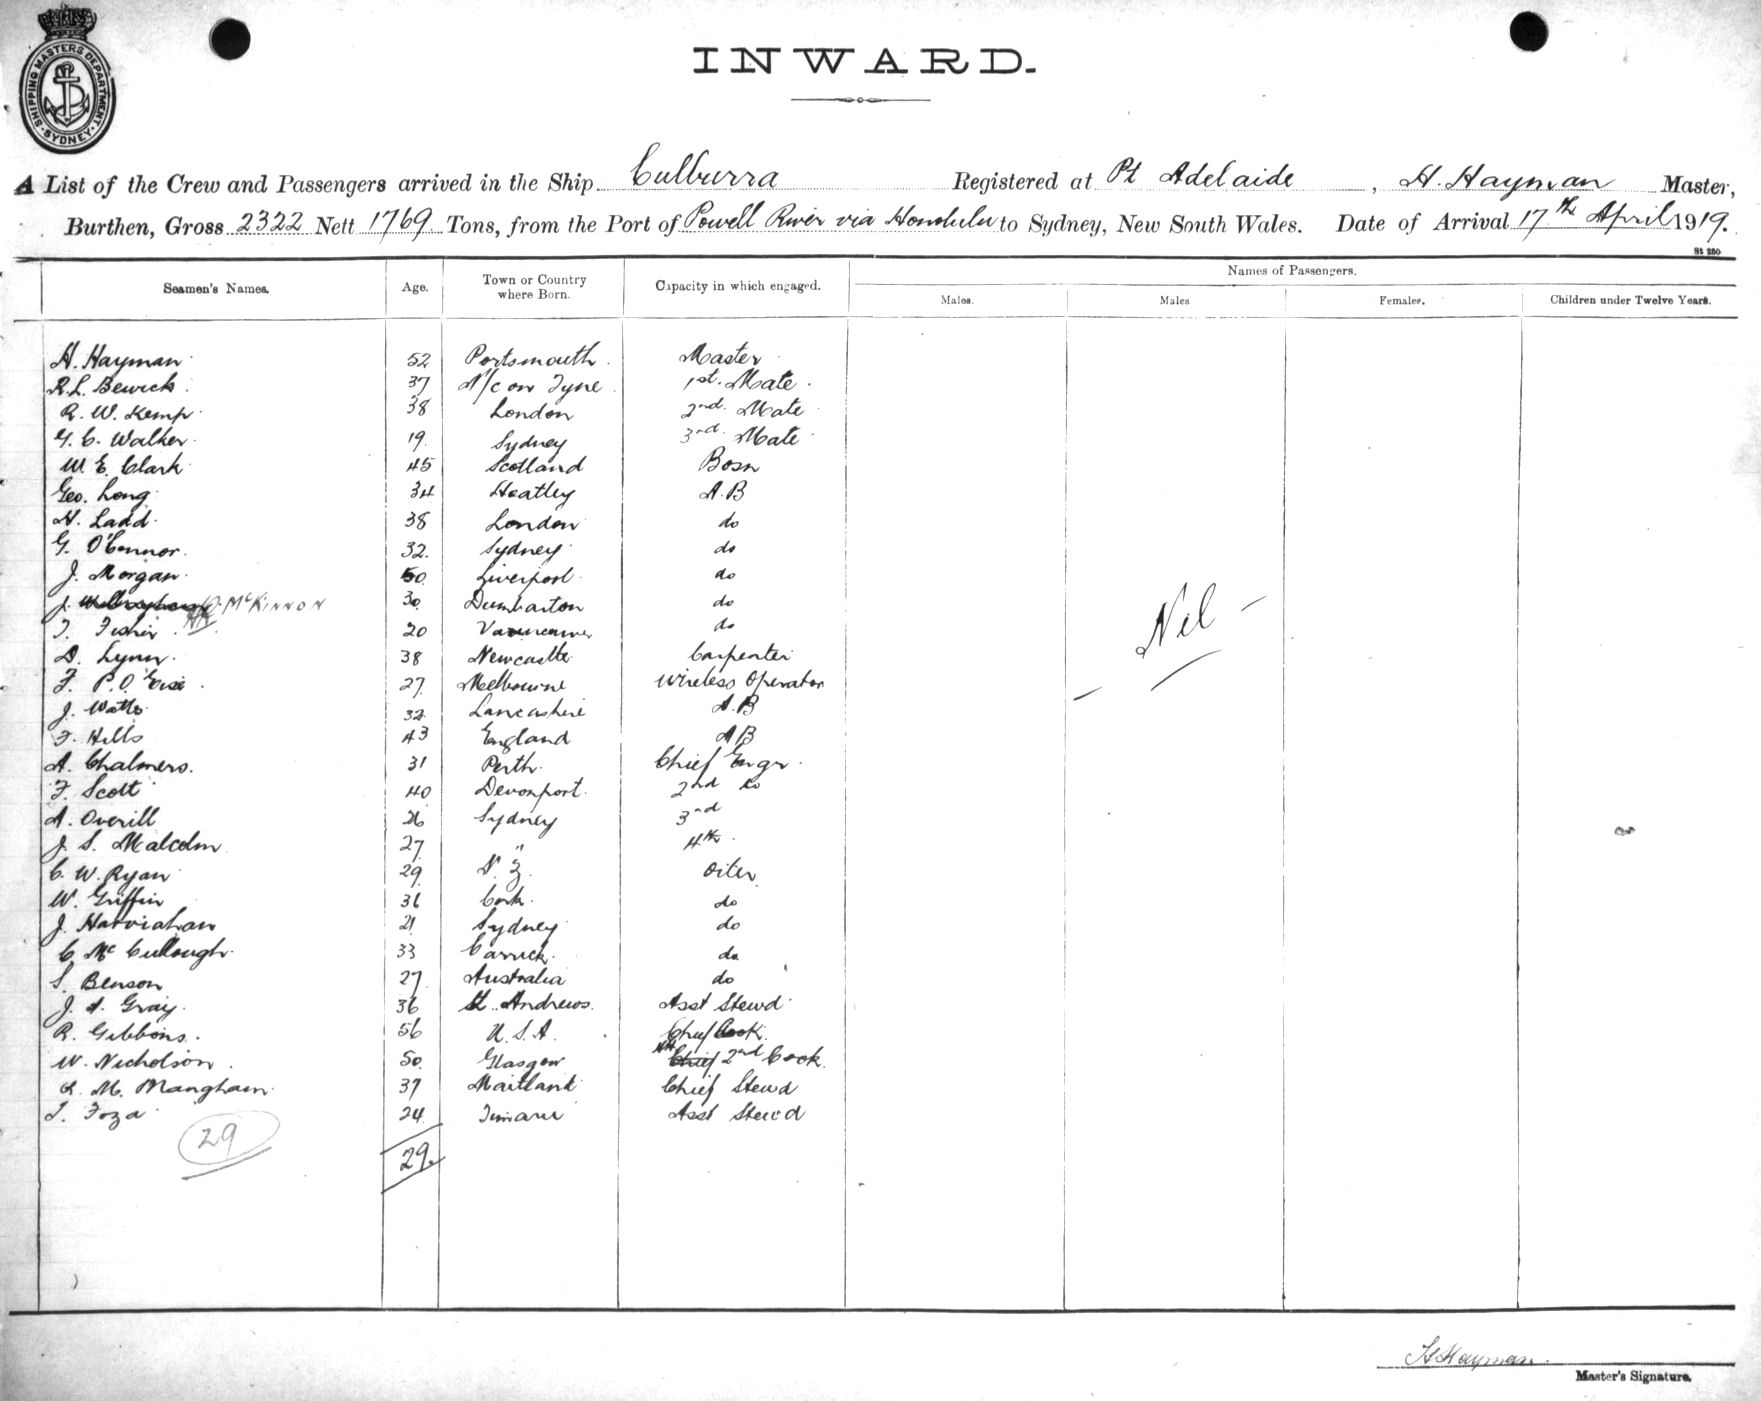 SHIPPING MASTERS DEPARTMENT
SYDNEY
INWARD.
A List of the Crew and Passengers arrived in the Ship Culburra Registered at Pt Adelaide, H. Hayman Master,
Burthen, Gross 2322 Nett 1769 Tons, from the Port of Powell River via Honolulu to Sydney, New South Wales. Date of Arrival 17th April 1919.
St 250
Seamen's Names. Age. Town or Country where Born. Capacity in which engaged. Names of Passengers.
Males. Males Females. Children under Twelve Years.
H. Hayman 52 Portsmouth Master
R. L. Bewick 37 N/c on Tyne 1st. Mate
R. W. Kemp 38 London 2nd. Mate
G. C. Walker 19 Sydney 3rd. Mate
W. E. Clark 45 Scotland Bosn
Geo. Long 34 Heatley A.B
H. Ladd 38 London do
G. O'Connor 32 Sydney do
J. Morgan 50 Liverpool do
J. McKinnon 30 Dumbarton do
T. Fisher 20 Vancouver do
D. Lynn 38 Newcastle Carpenter
F. P. O. 27 Melbourne Wireless Operator
J. Watts 32 Lancashire A.B
F. Hills 43 England A B
A. Chalmers. 31 Perth Chief Engr
F. Scott 40 Devonport 2nd do
A. Overill 26 Sydney 3rd
J. S. Malcolm 27 " 4th
C. W. Ryan 29 N. Z. Oiler
W. Griffin 36 Cork do
J. 21 Sydney do
C McCullough 33 Carrick do
S. Benson 27 Australia do
J. A. Gray 36 St. Andrews Asst Stewd
R. Gibbons 56 U. S. A. Chief Cook
W. Nicholson 50 Glasgow Chief 2nd Cook
L. M. Mangham 37 Maitland Chief Stewd
T. Foza 24 Timaru Asst Stewd
Nil
29
29
H Hayman
Master's Signature.